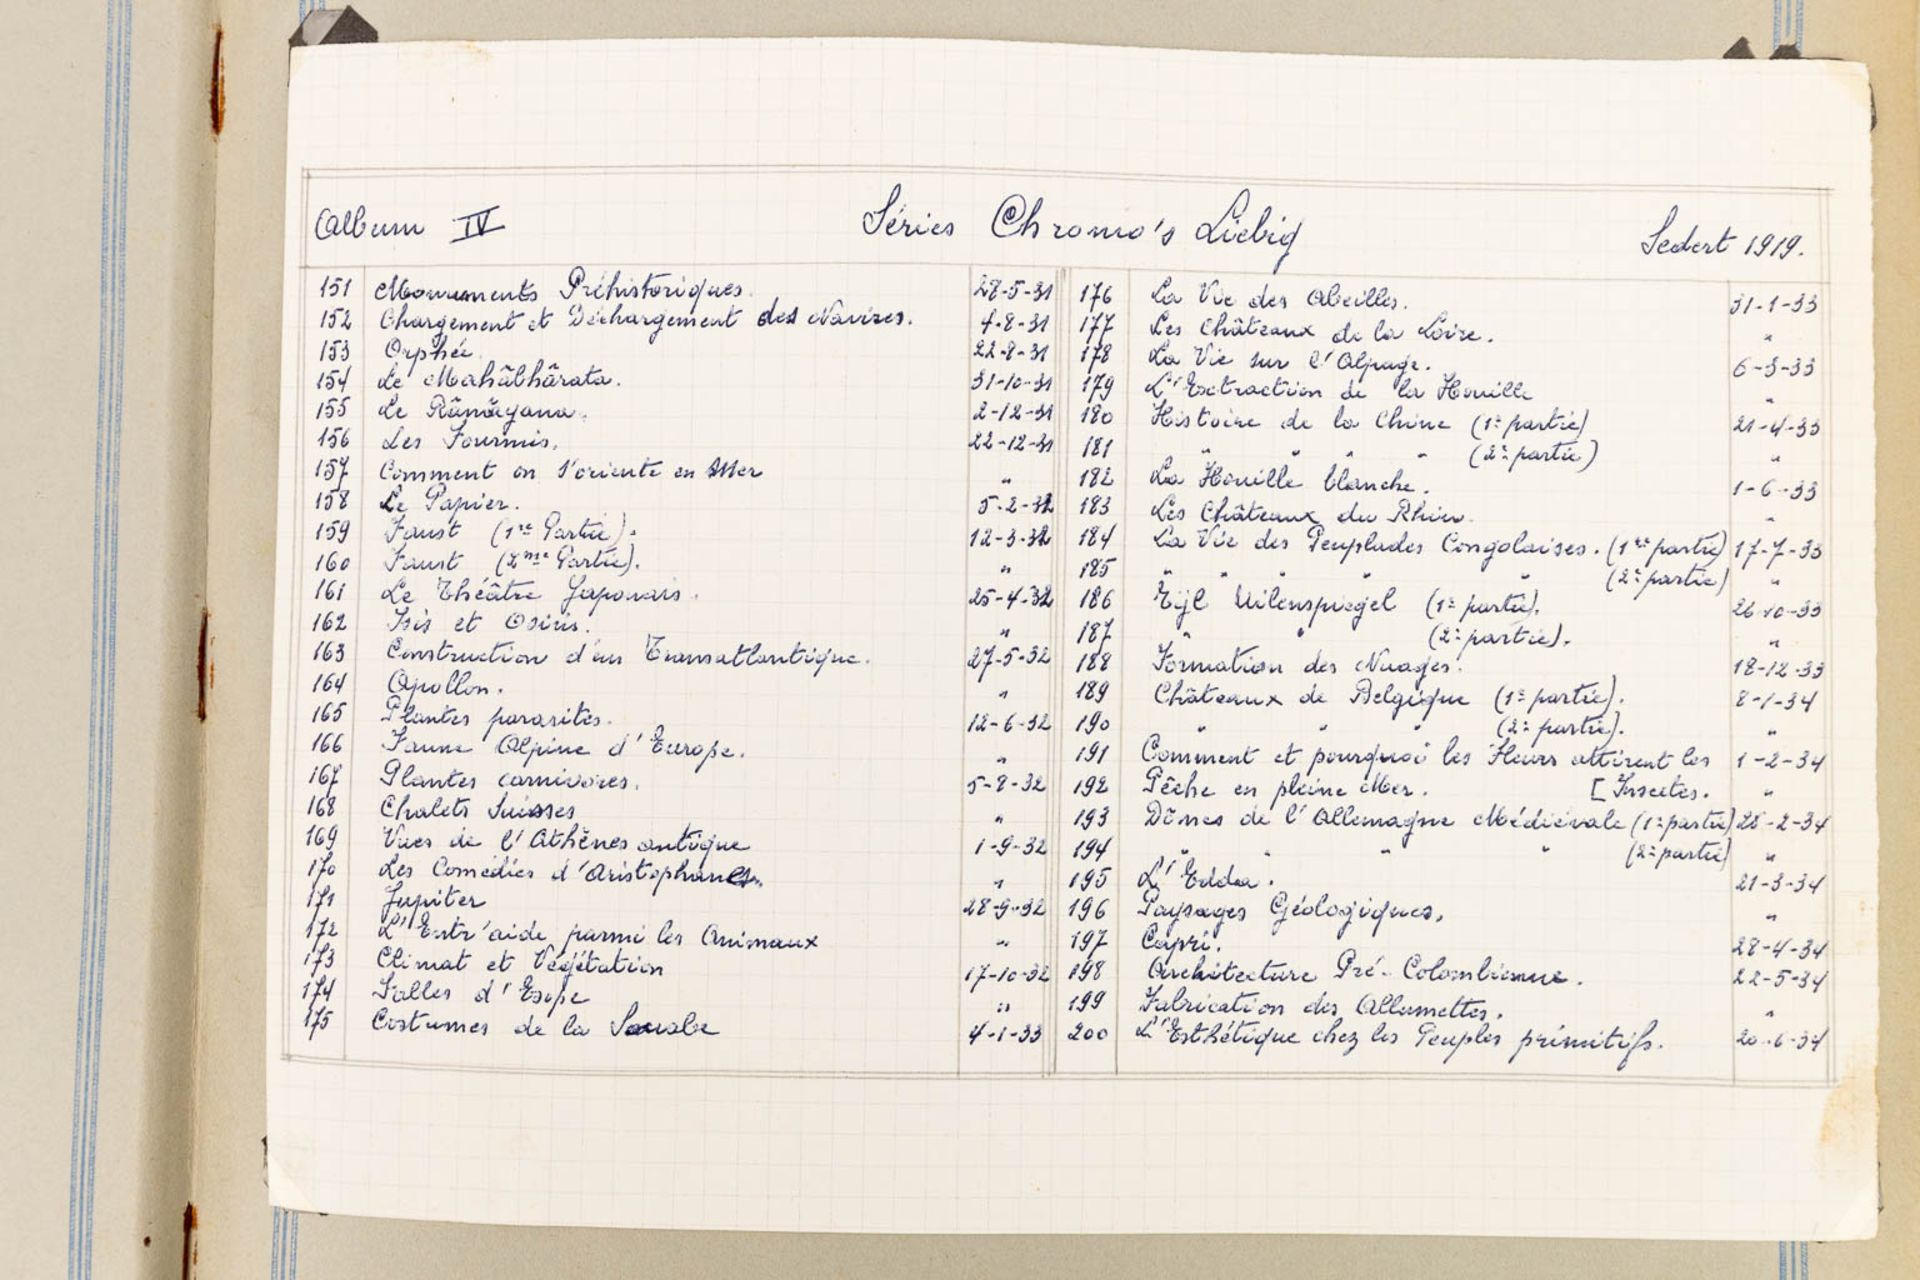 Album IV Séries Chromo's Liebig Sedert 1919.
151 Monuments Préhistoriques. 28-5-31
152 Chargement et Déchargement des Navires. 4-8-31
153 Orphée. 22-8-31
154 Le Mahâbhârata. 31-10-31
155 Le Râmâyana. 2-12-31
156 Les Fourmis. 22-12-31
157 Comment on s'oriente en Mer "
158 Le Papier. 5-2-32
159 Faust (1re Partie). 12-3-32
160 Faust (2me Partie). "
161 Le Théâtre Japonais. 25-4-32
162 Isis et Osiris. "
163 Construction d'un Transatlantique. 27-5-32
164 Apollon. "
165 Plantes parasites. 12-6-32
166 Faune Alpine d'Europe. "
167 Plantes carnivores. 5-8-32
168 Chalets Suisses "
169 Vues de l'Athènes antique 1-9-32
170 Les Comédies d'Aristophanes. "
171 Jupiter 28-9-32
172 L'Entr'aide parmi les Animaux "
173 Climat et Végétation 17-10-32
174 Falles d'Esope "
175 Costumes de la Souabe 4-1-33
176 La Vie des Abeilles. 31-1-33
177 Les Châteaux de la Loire. "
178 La Vie sur l'Alpage. 6-3-33
179 L'Extraction de la Houille "
180 Histoire de la Chine (1e partie) 21-4-33
181 " " " " (2e partie) "
182 La Houille blanche. 1-6-33
183 Les Châteaux du Rhin. "
184 La Vie des Peuplades Congolaises. (1re partie) 17-7-33
185 " " " " " (2e partie) "
186 Tijl Uilenspiegel (1e partie). 26-10-33
187 " " (2e partie). "
188 Formation des Nuages. 18-12-33
189 Châteaux de Belgique (1e partie). 8-1-34
190 " " " (2e partie). "
191 Comment et pourquoi les Fleurs attirent les 1-2-34
192 Pêche en pleine Mer. [Insectes. "
193 Dômes de l'Allemagne Médiévale (1e partie) 28-2-34
194 " " " " (2e partie) "
195 L'Edda. 21-3-34
196 Paysages Géologiques. "
197 Capri. 28-4-34
198 Architecture Pré-Colombienne. 22-5-34
199 Fabrication des Allumettes. "
200 L'Esthétique chez les Peuples primitifs. 20-6-34